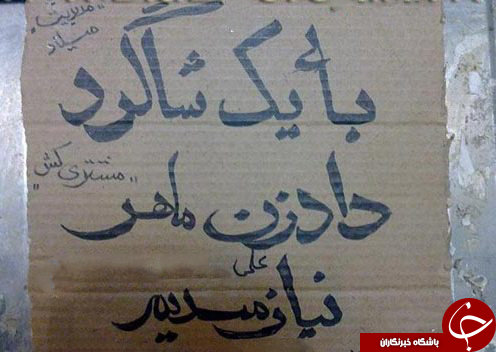 "مدیریت"
میلاد
بائ یک شاگرد
"مشتری کش"
دادزن ماهر
علی
نیازمندیم
باشگاه خبرنگاران